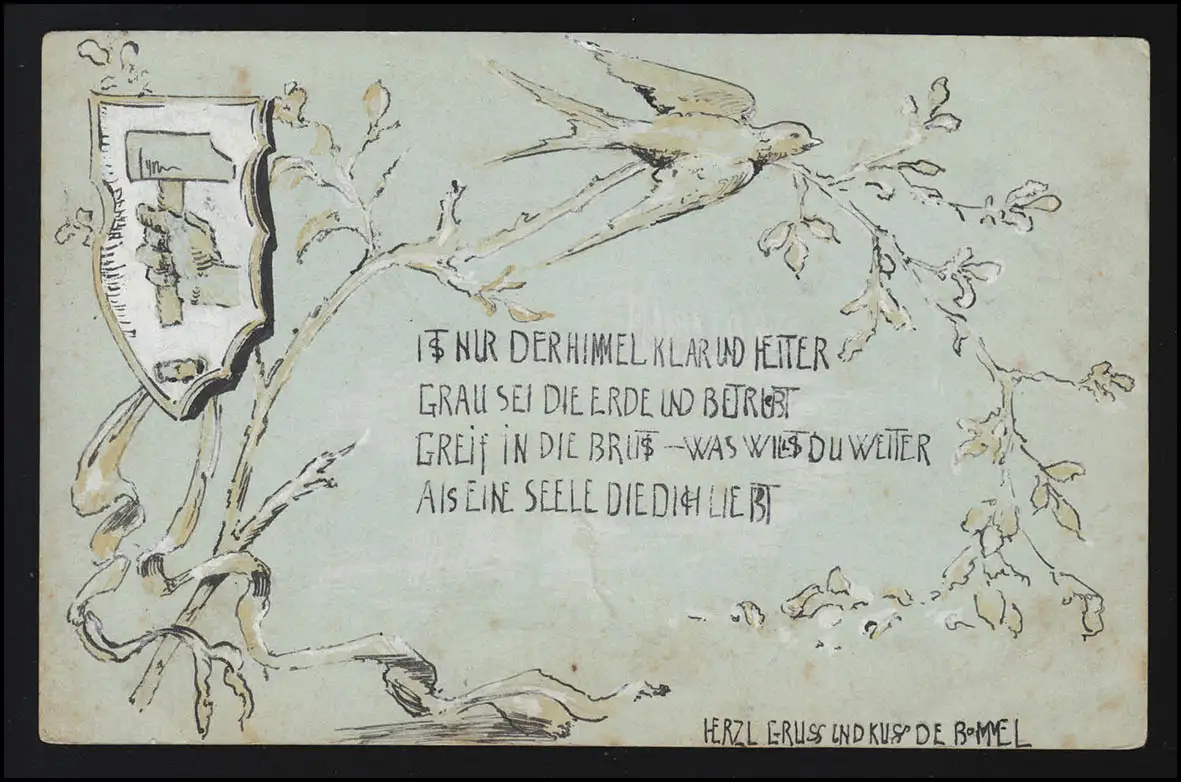 IST NUR DER HIMMEL KLAR UND HEITER
GRAU SEI DIE ERDE UND BETRÜBT
GREIF IN DIE BRUST – WAS WILLST DU WEITER
ALS EINE SEELE DIE DICH LIEBT
HERZL GRUSS UND KUSS DE BOMMEL